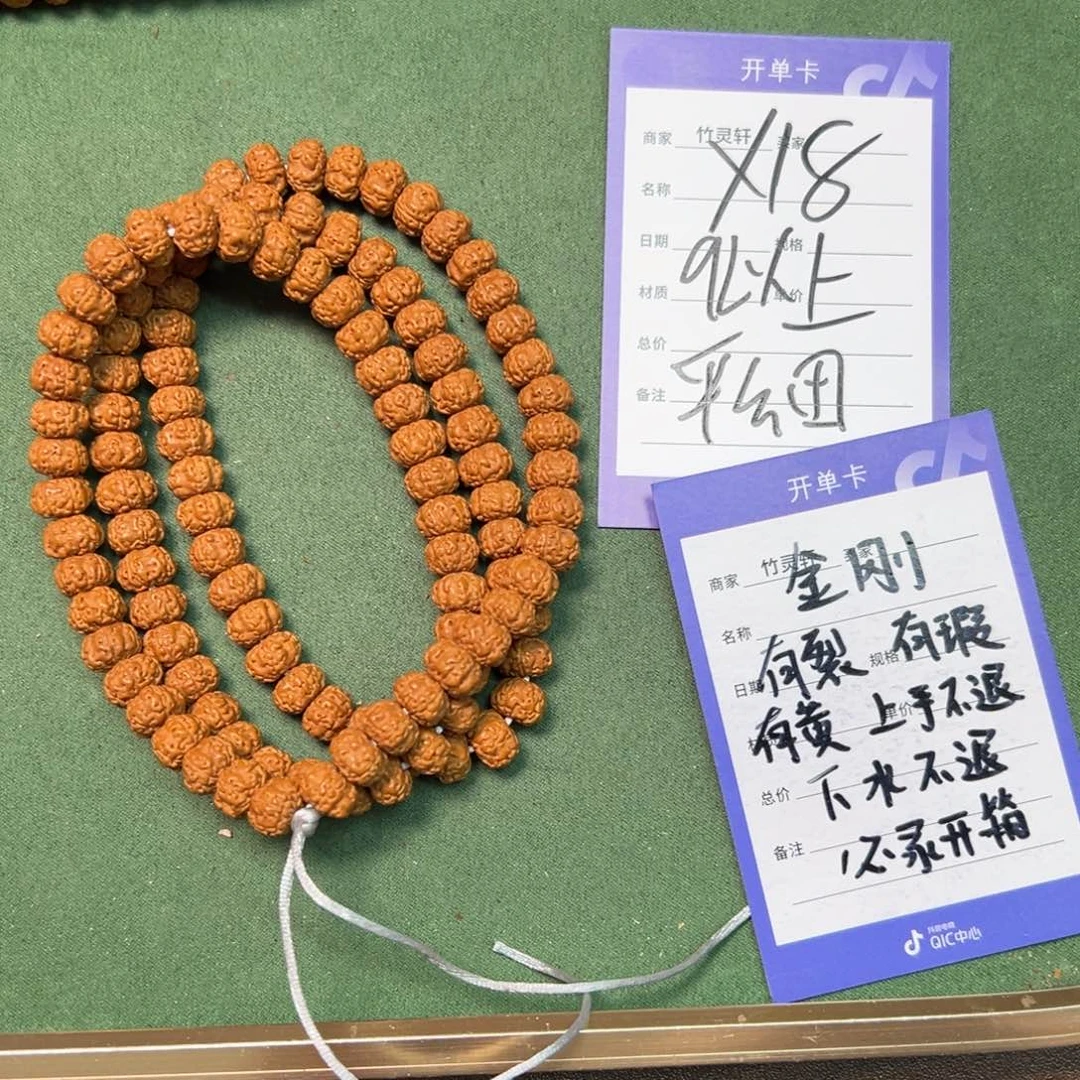 开单卡
商家 竹灵轩 买家
X18
名称
日期 规格
92以上
材质 单价
总价
备注
开单卡
商家 竹灵轩 买家
金刚
名称
有裂 规格 有瑕
日期
有黄 单价 上手不退
总价 下水不退
备注 必录开箱
抖音电商
QIC中心